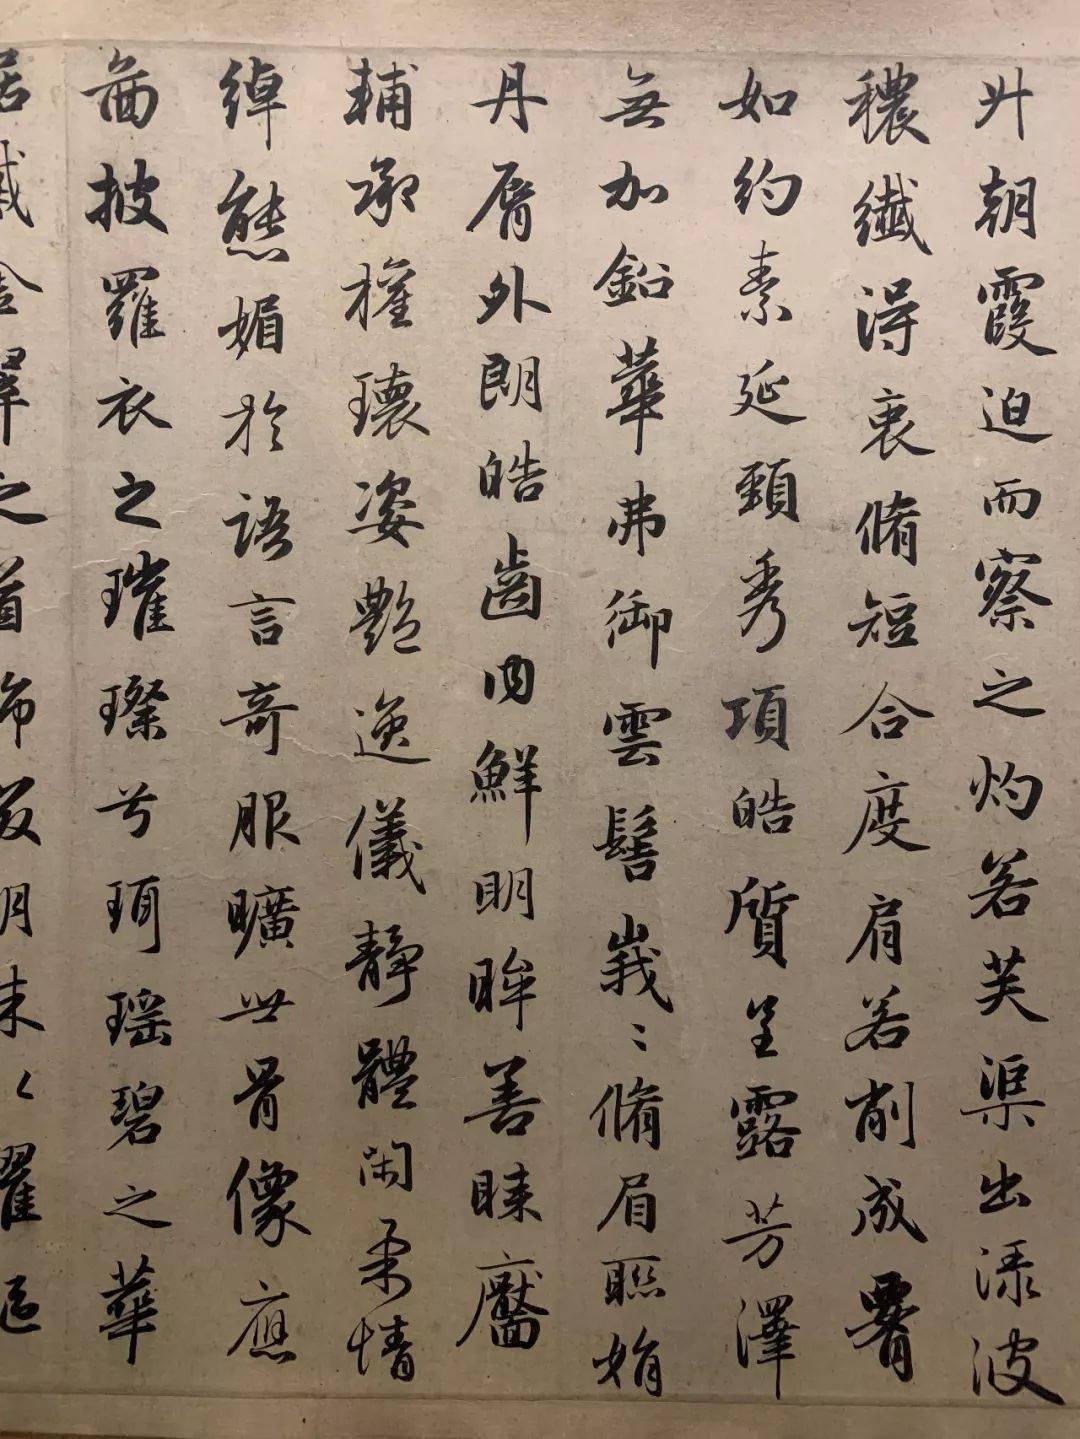 升朝霞迫而察之灼若芙渠出淥波
穠纖得衷脩短合度肩若削成𦝫
如約素延頸秀項皓質呈露芳澤
無加鉛華弗御雲髻峩〻脩眉聮娟
丹脣外朗皓齒内鮮明眸善睞靨
輔承權瓌姿艶逸儀靜體閑柔情
綽態媚於語言奇服曠世骨像應
啚披羅衣之璀璨兮珥瑶碧之華